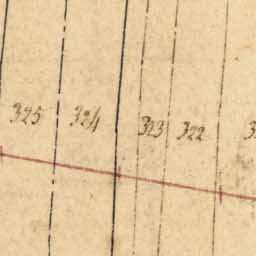 325 324 323 322